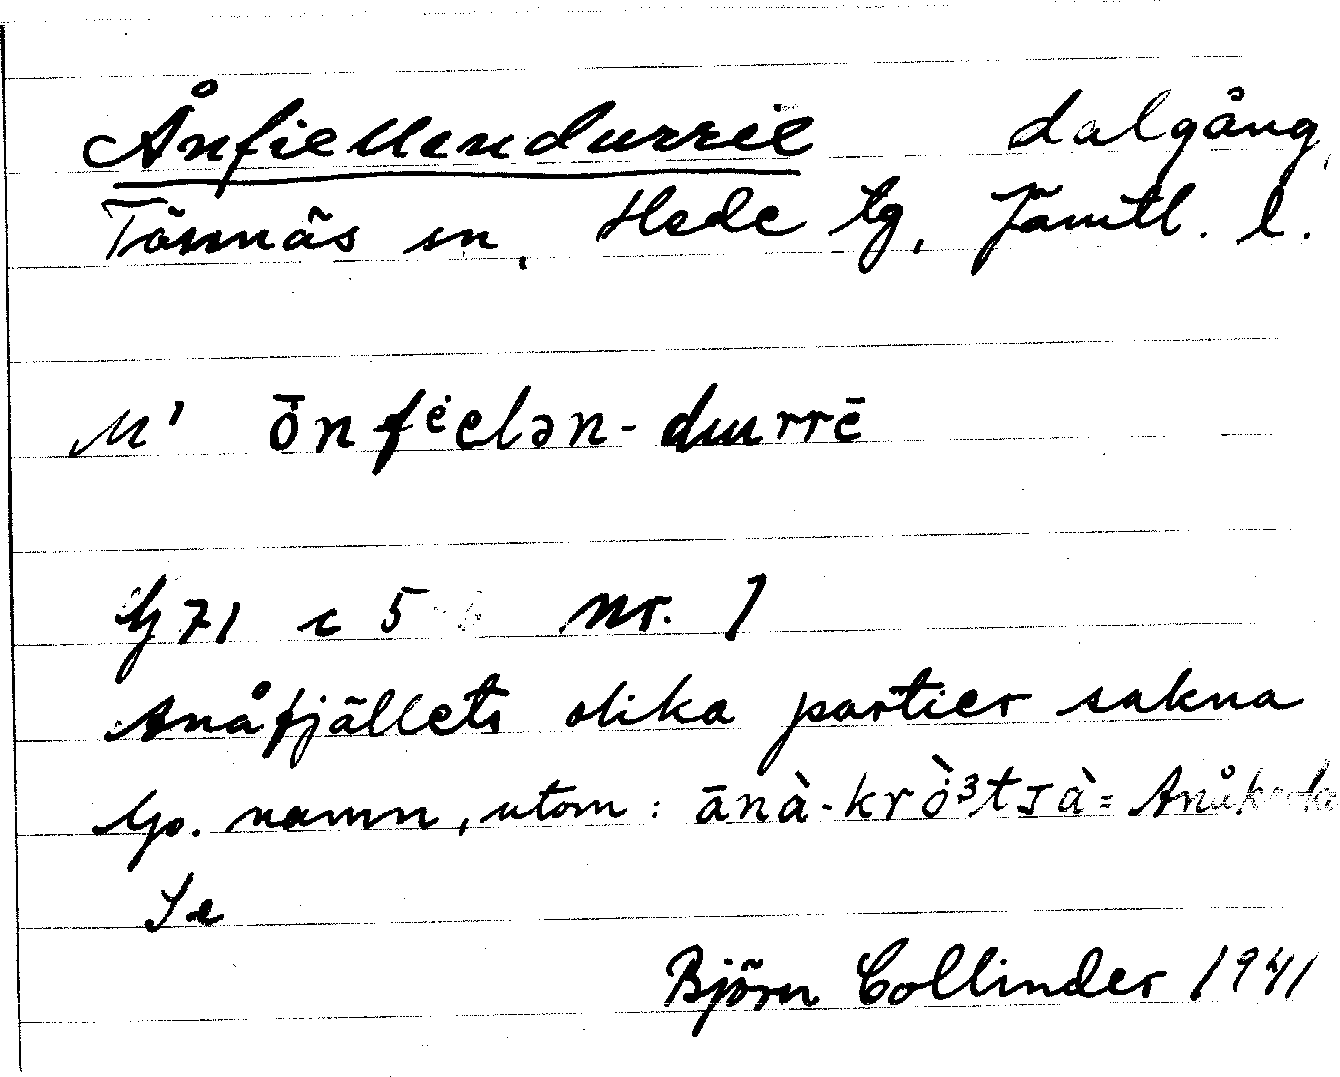 Ånfiellendurrie dalgång,
Tännäs sn, Hede tg, Jämtl. l.
M' ōnfėelən-duurrē
G 71 c 5 nr. 1
Anåfjällets olika partier sakna
lp. namn, utom: ānà-krò³tsà = Anåk
Se
Björn Collinder 1941